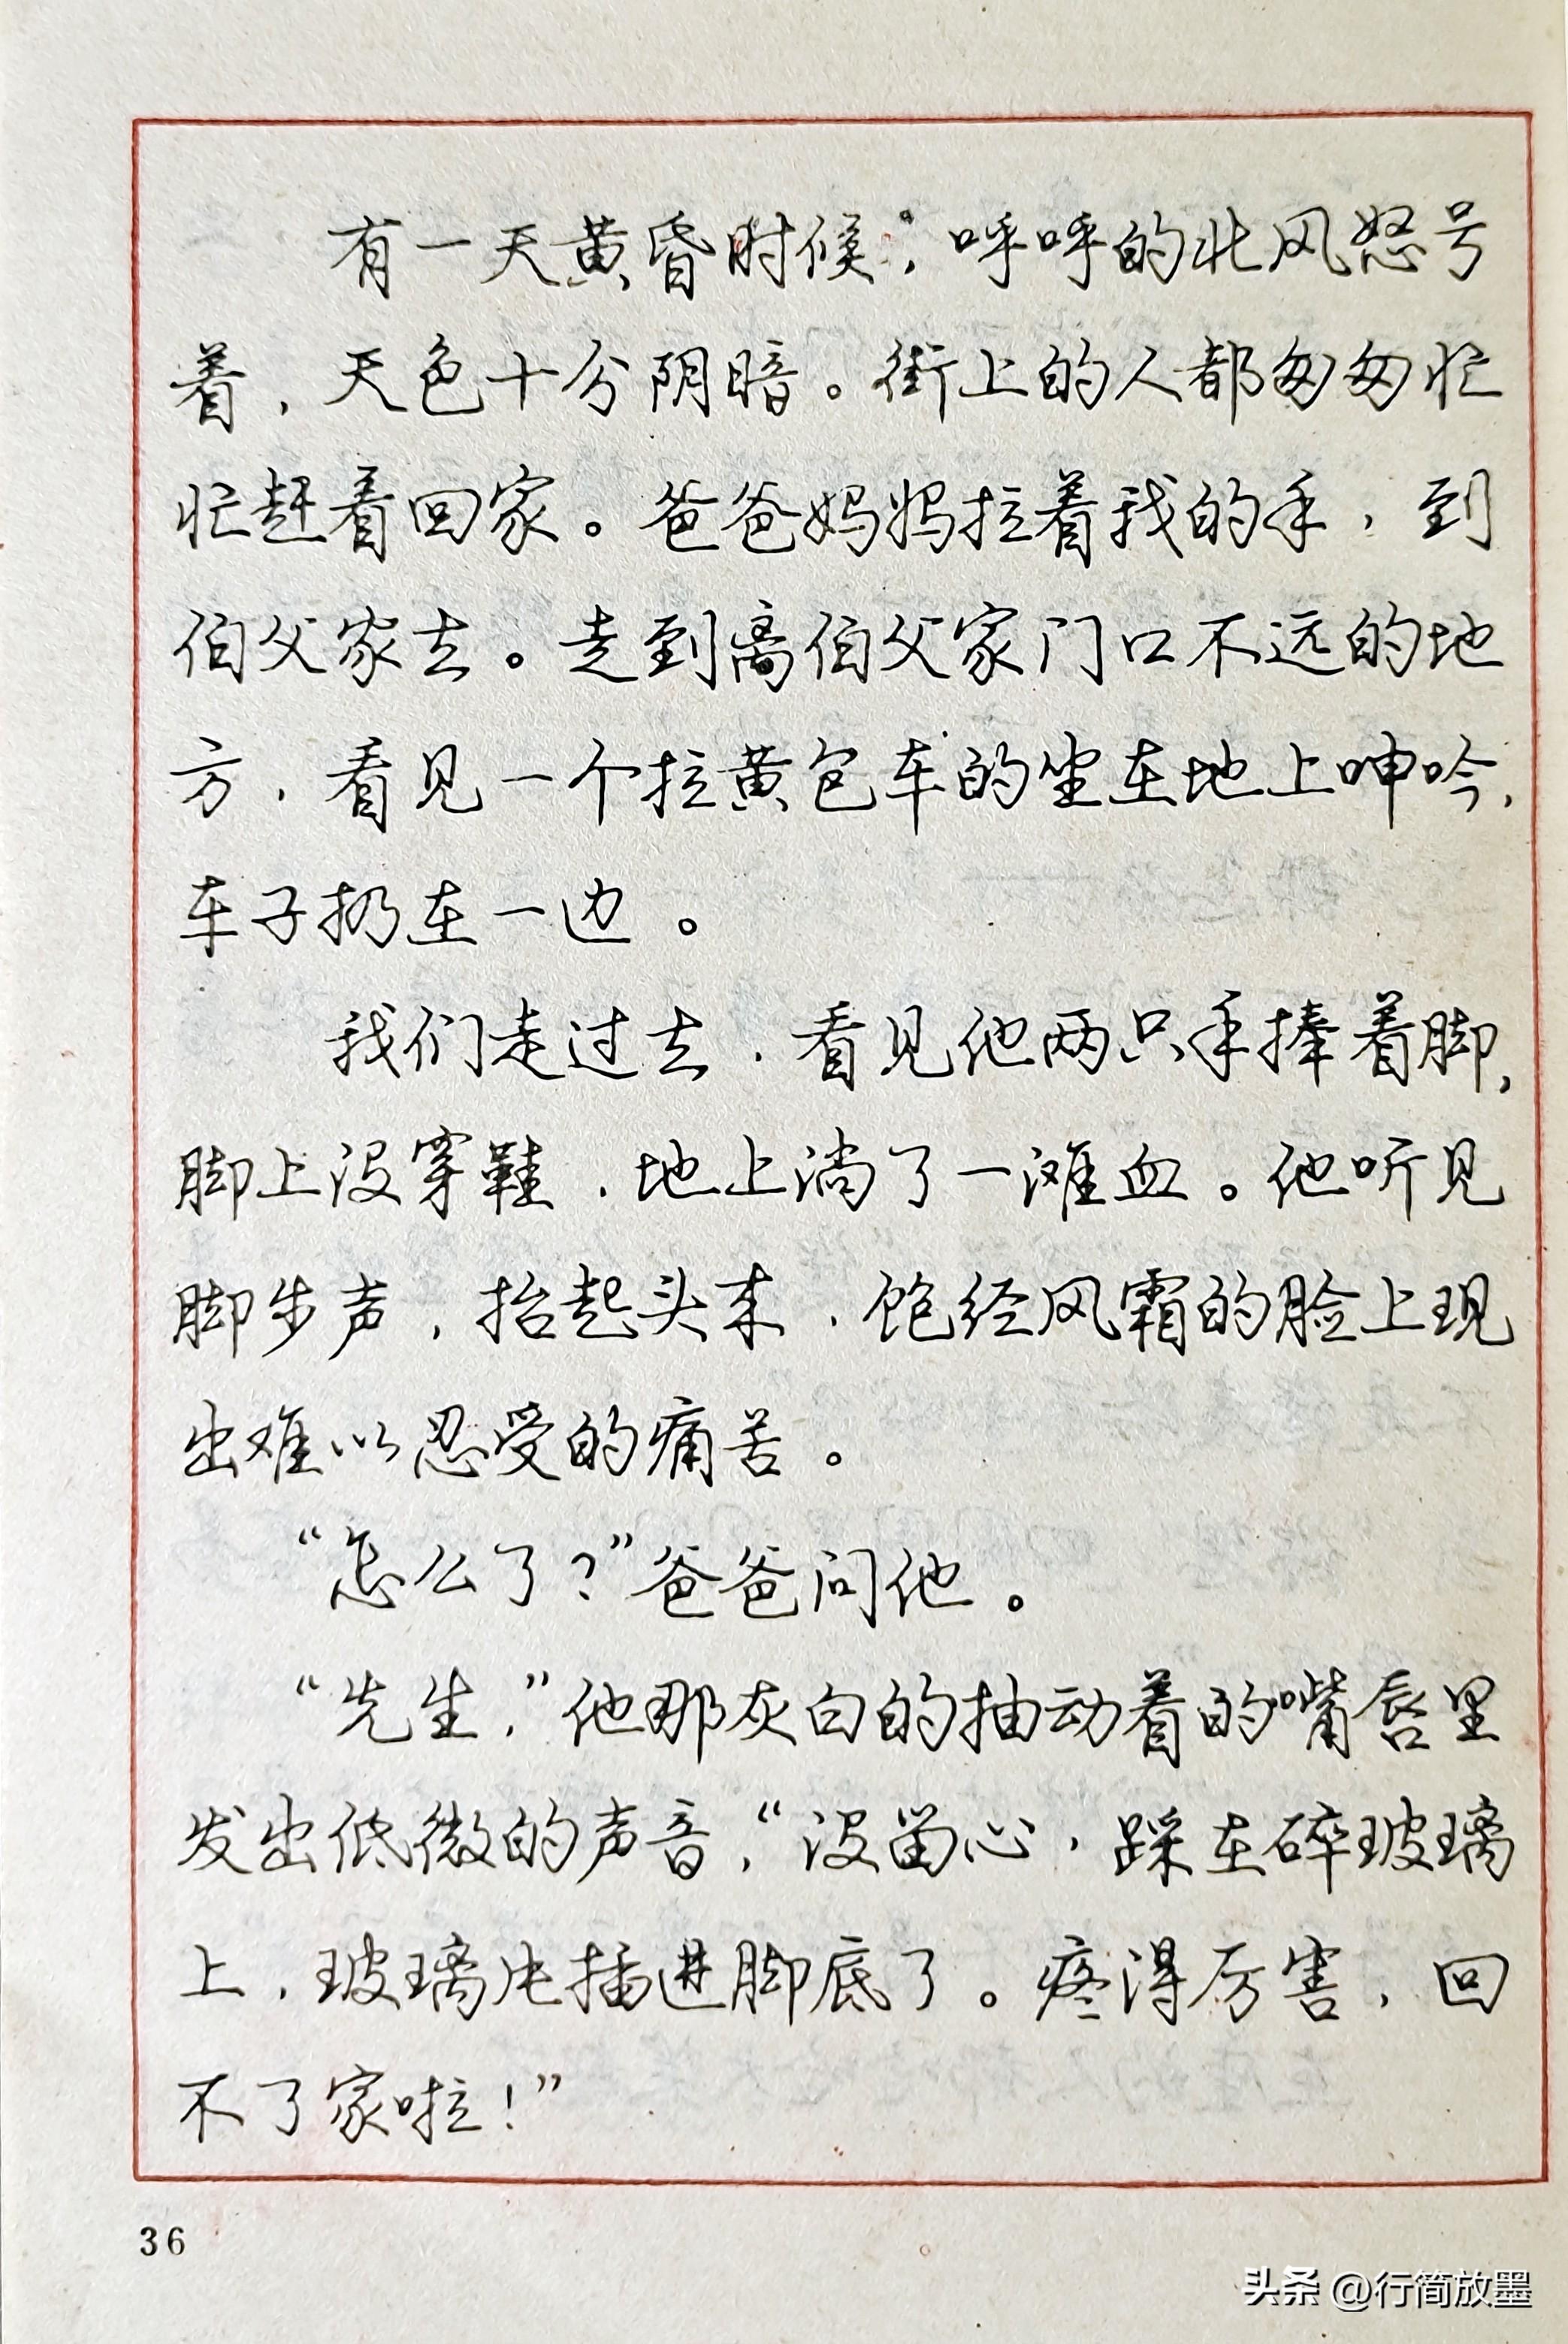 有一天黄昏时候，呼呼的北风怒号
着，天色十分阴暗。街上的人都匆匆忙
忙赶着回家。爸爸妈妈拉着我的手，到
伯父家去。走到离伯父家门口不远的地
方，看见一个拉黄包车的坐在地上呻吟，
车子扔在一边。
我们走过去，看见他两只手捧着脚，
脚上没穿鞋，地上淌了一滩血。他听见
脚步声，抬起头来，饱经风霜的脸上现
出难以忍受的痛苦。
“怎么了？”爸爸问他。
“先生，”他那灰白的抽动着的嘴唇里
发出低微的声音，“没留心，踩在碎玻璃
上，玻璃片插进脚底了。疼得厉害，回
不了家啦！”
36
头条 @行简放墨